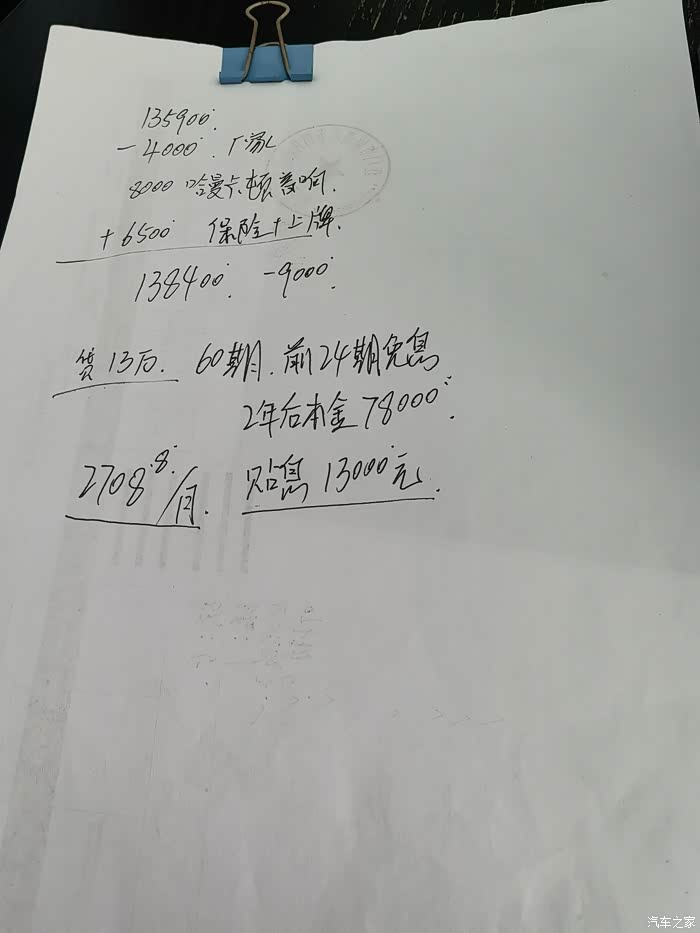 135900
-4000 厂家
8000 哈曼卡顿音响.
+6500 保险+上牌.
138400. -9000.
贷13万. 60期. 前24期免息
2年后本金78000.
2708.8/月. 贴息13000元.
汽车之家